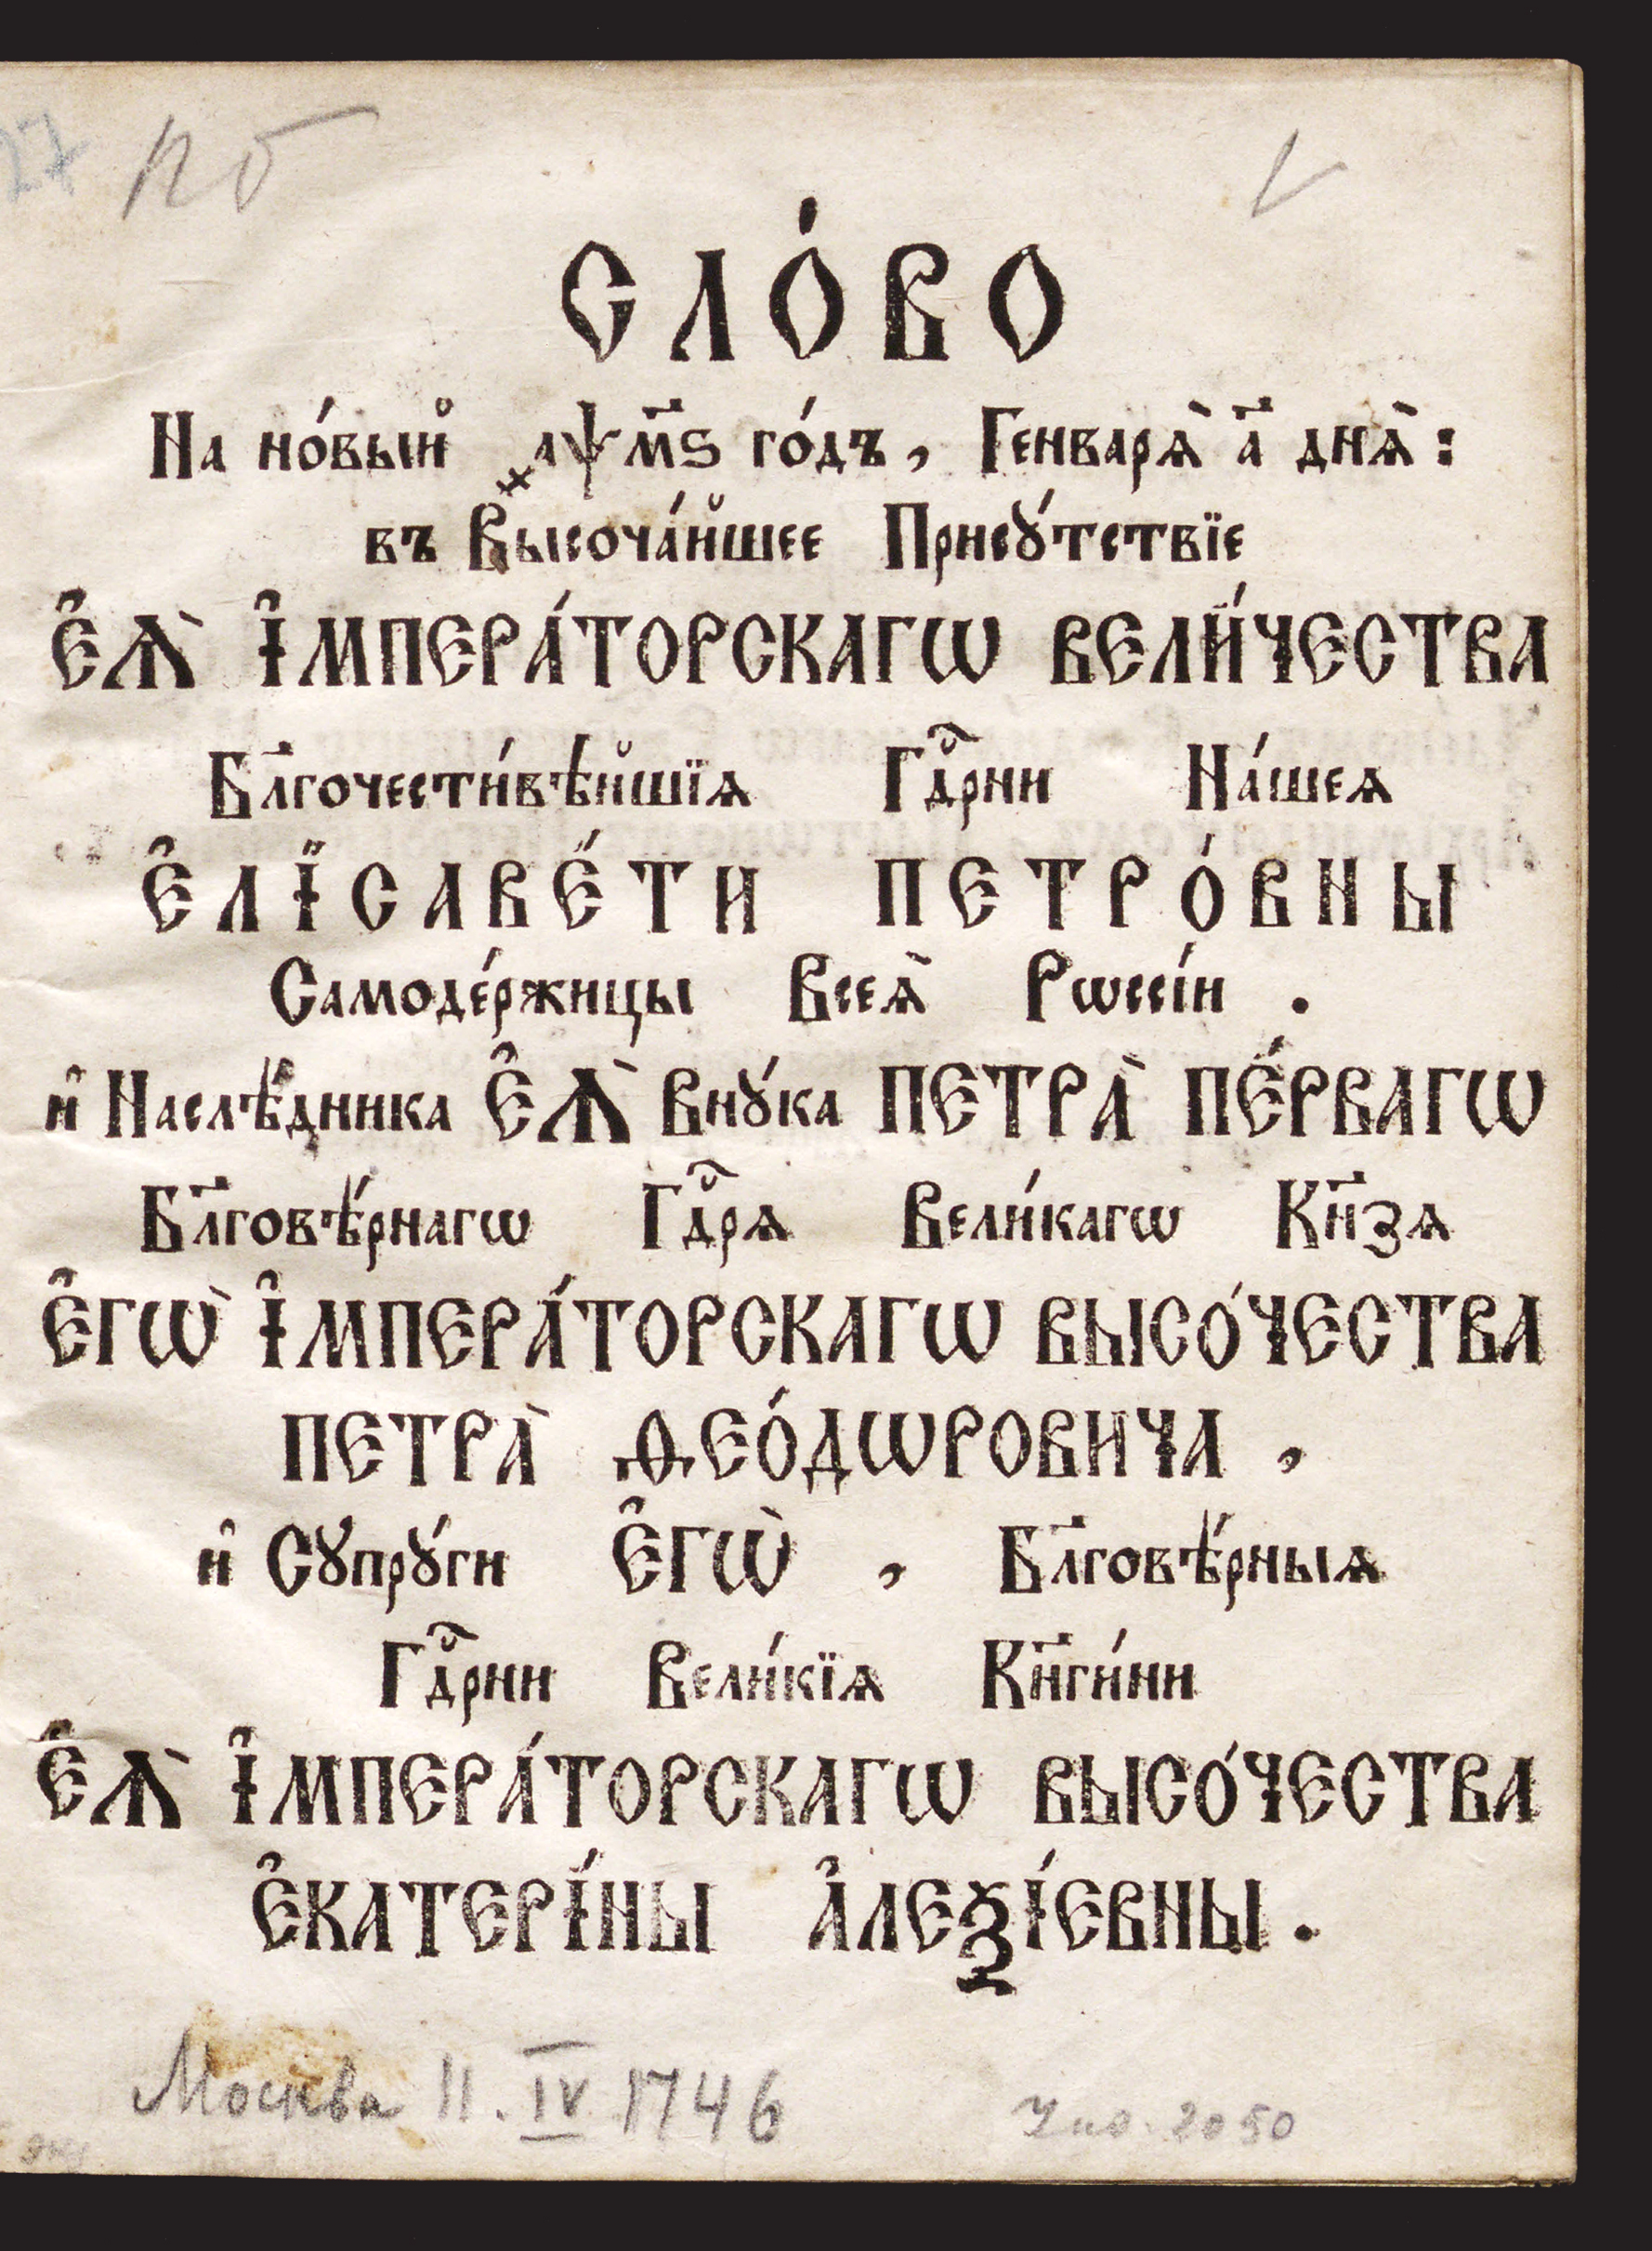 27 П б
СЛО́ВО
На но́вый ҂аѱм҃ѕ го́дъ, Генварѧ̀ а҃ днѧ̀:
въ Высоча́йшее Присꙋ́тствїе
Е҆Ѧ̀ І҆МПЕРА́ТОРСКАГѠ ВЕЛИ́ЧЕСТВА
Бл҃гочести́вѣйшїѧ Гдⷭ҇рни На́шеѧ
Е҆ЛІСАВЕ́ТИ ПЕТРО́ВНЫ
Самоде́ржицы Всеѧ̀ Рѡссі́и .
и҆ Наслѣ́дника Е҆Ѧ̀ Внꙋ́ка ПЕТРА̀ ПЕ́РВАГѠ
Бл҃говѣ́рнагѡ Гдⷭ҇рѧ Вели́кагѡ Кн҃зѧ
Е҆ГѠ̀ І҆МПЕРА́ТОРСКАГѠ ВЫСО́ЧЕСТВА
ПЕТРА̀ ѲЕО́ДѠРОВИЧА ,
и҆ Сꙋпрꙋ́ги Е҆ГѠ̀ , Бл҃говѣ́рныѧ
Гдⷭ҇рни Вели́кїѧ Кн҃ги́ни
Е҆Ѧ̀ І҆МПЕРА́ТОРСКАГѠ ВЫСО́ЧЕСТВА
Е҆КАТЕРІ́НЫ А҆ЛЕѮІ́ЕВНЫ .
Москва 11. IV 1746
2050